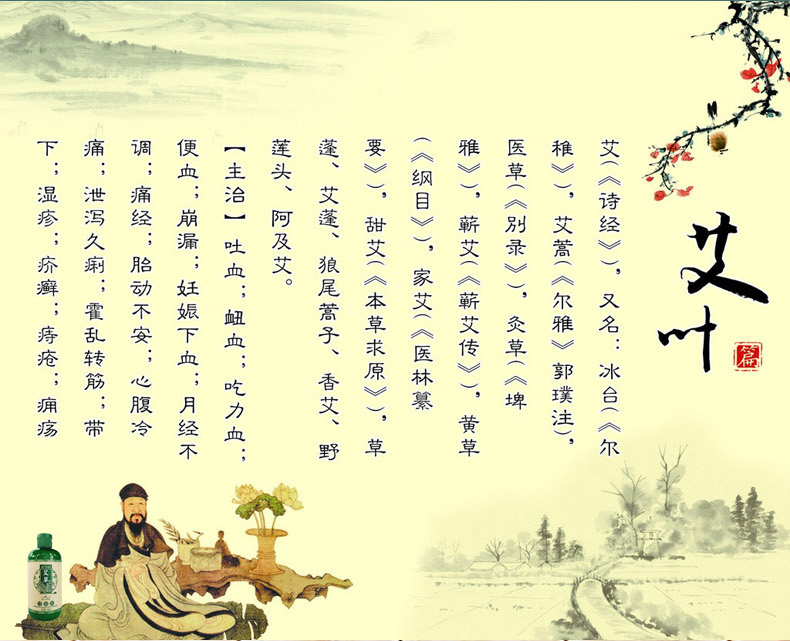 艾叶
篇
艾(《诗经》),又名:冰台(《尔
稚》),艾蒿(《尔雅》郭璞注),
医草(《别录》),灸草(《埤
雅》),蕲艾(《蕲艾传》),黄草
(《纲目》),家艾(《医林纂
要》),甜艾(《本草求原》),草
蓬、艾蓬、狼尾蒿子、香艾、野
莲头、阿及艾。
【主治】吐血;衄血;吃力血;
便血;崩漏;妊娠下血;月经不
调;痛经;胎动不安;心腹冷
痛;泄泻久痢;霍乱转筋;带
下;湿疹;疥癣;痔疮;痈疡